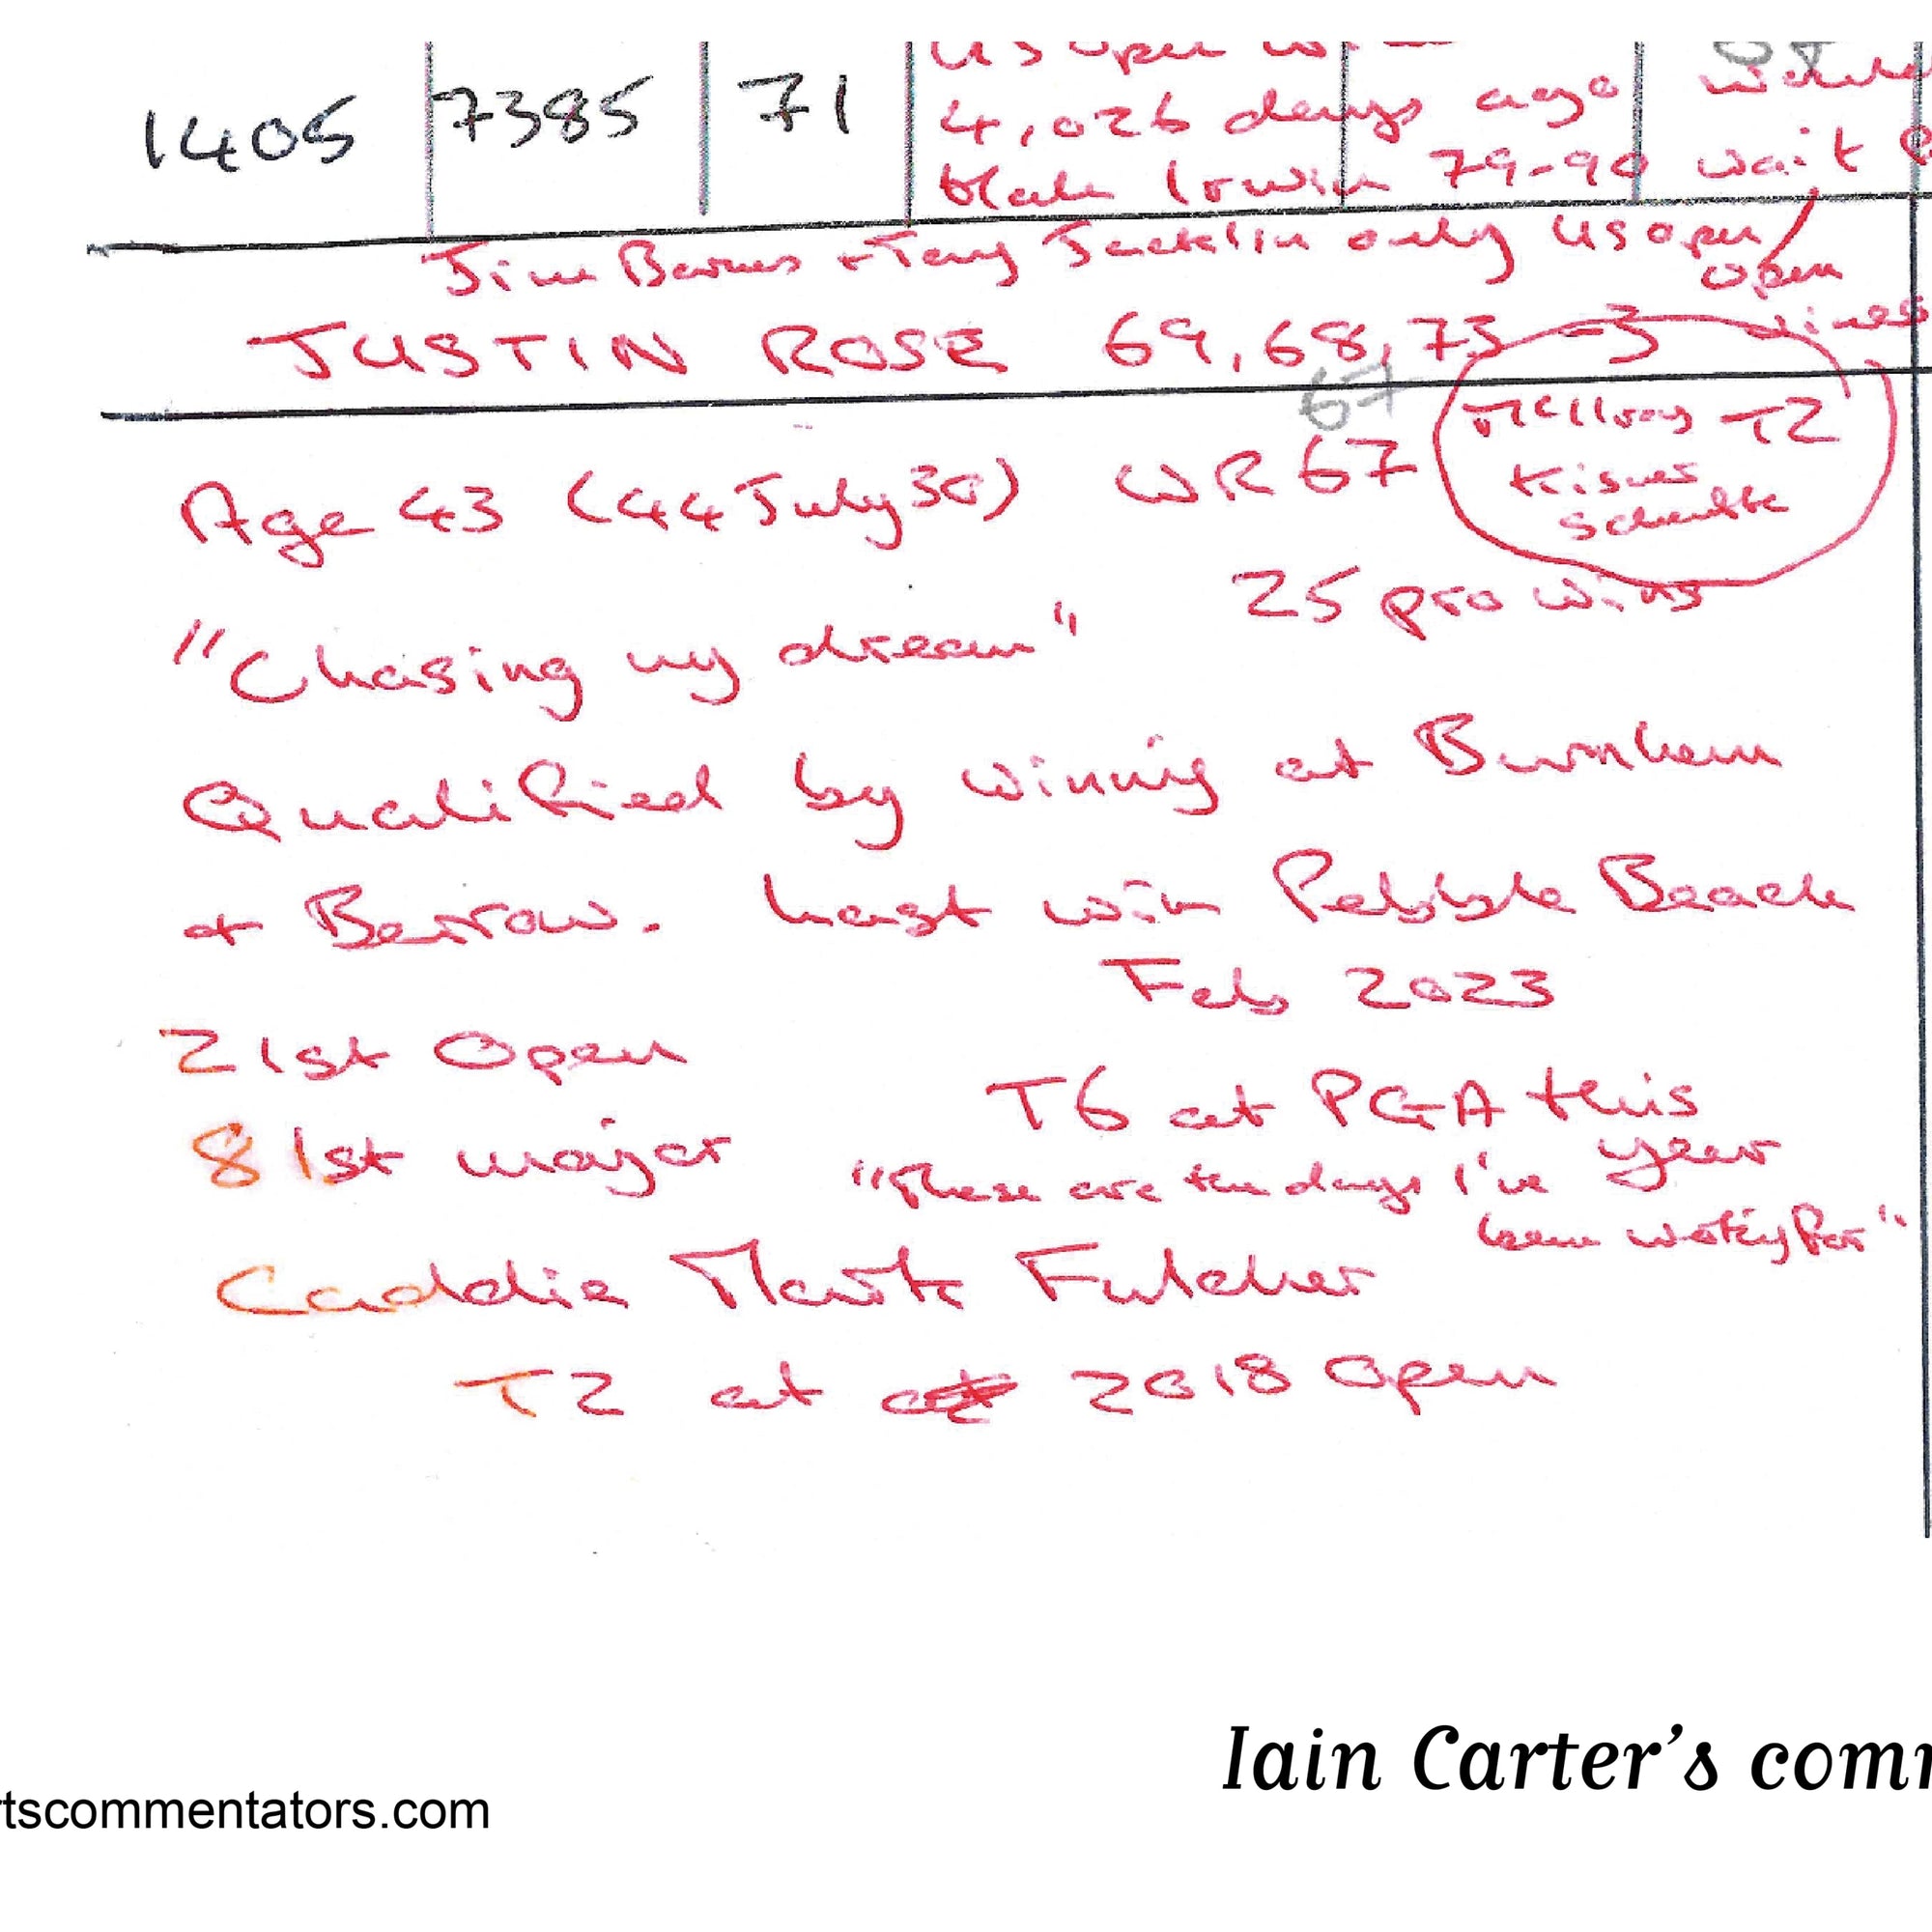 US Open
1405 7385 71 4,026 days ago
Hale Irwin 79-90 wait
Jim Barnes + Tony Jacklin only US Open/
Open
JUSTIN ROSE 69, 68, 73 -3
67
Age 43 (44 July 30) WR 67
McIlroy T2
Kisner
Schauffele
"Chasing my dream" 25 pro wins
Qualified by winning at Burnham
+ Berrow. Last win Pebble Beach
Feb 2023
21st Open
T6 at PGA this
year
81st major
"These are the days I've
been waiting for"
Caddie Mark Fulcher
T2 at 2018 Open
Iain Carter's comm
rtscommentators.com